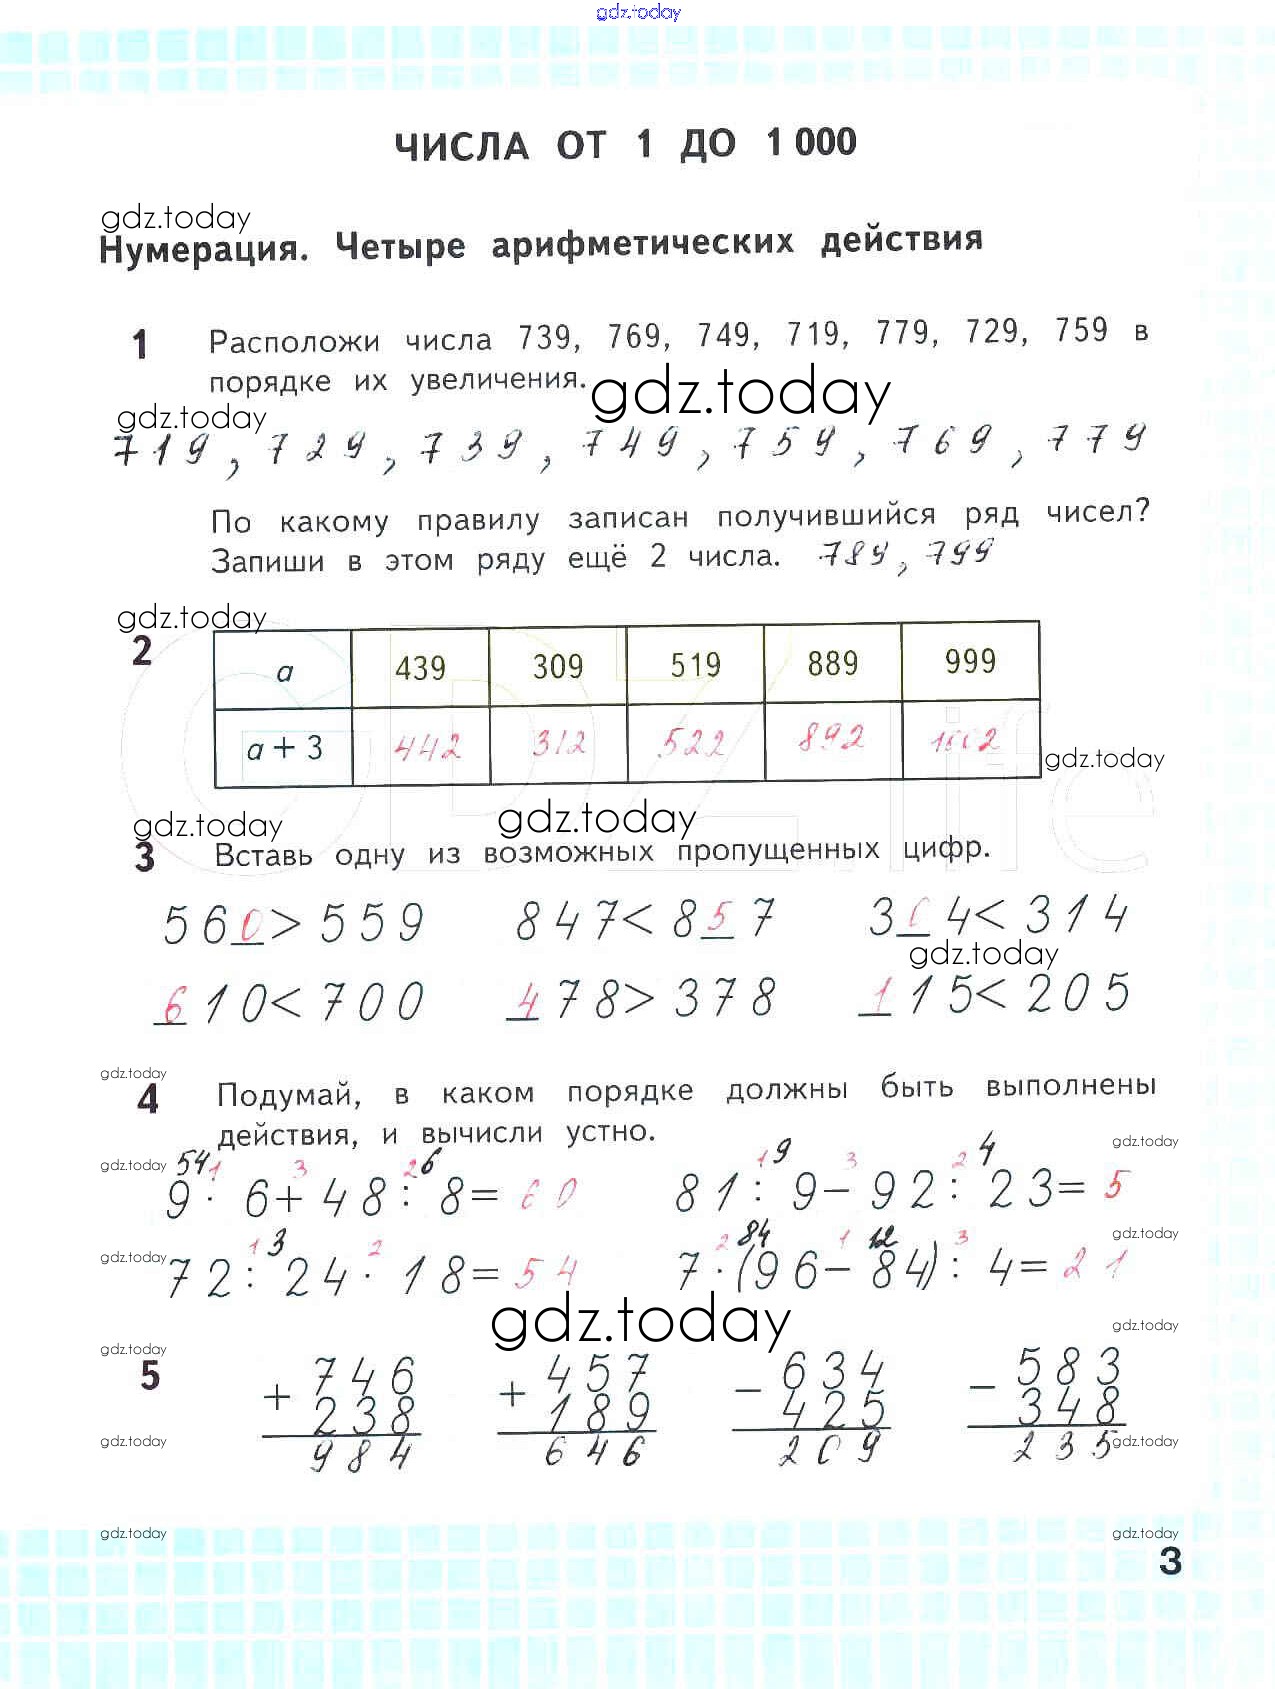 gdz.today
ЧИСЛА ОТ 1 ДО 1 000
gdz.today
Нумерация. Четыре арифметических действия
1 Расположи числа 739, 769, 749, 719, 779, 729, 759 в
порядке их увеличения.
gdz.today
gdz.today
719, 729, 739, 749, 759, 769, 779
По какому правилу записан получившийся ряд чисел?
Запиши в этом ряду ещё 2 числа. 789, 799
gdz.today
2
a 439 309 519 889 999
a + 3 442 312 522 892 1002
gdz.today
gdz.today
gdz.today
3 Вставь одну из возможных пропущенных цифр.
560 > 559 847 < 857 304 < 314
gdz.today
610 < 700 478 > 378 115 < 205
gdz.today
4 Подумай, в каком порядке должны быть выполнены
действия, и вычисли устно.
gdz.today
gdz.today
54 1 3 2 6 1 9 3 2 4
9 · 6 + 48 : 8 = 60 81 : 9 − 92 : 23 = 5
gdz.today
gdz.today
1 3 2 2 84 1 12 3
72 : 24 · 18 = 54 7 · (96 − 84) : 4 = 21
gdz.today
gdz.today
gdz.today
5
746 457 634 583
+ + − −
238 189 425 348
984 646 209 235
gdz.today
gdz.today
gdz.today
gdz.today
3